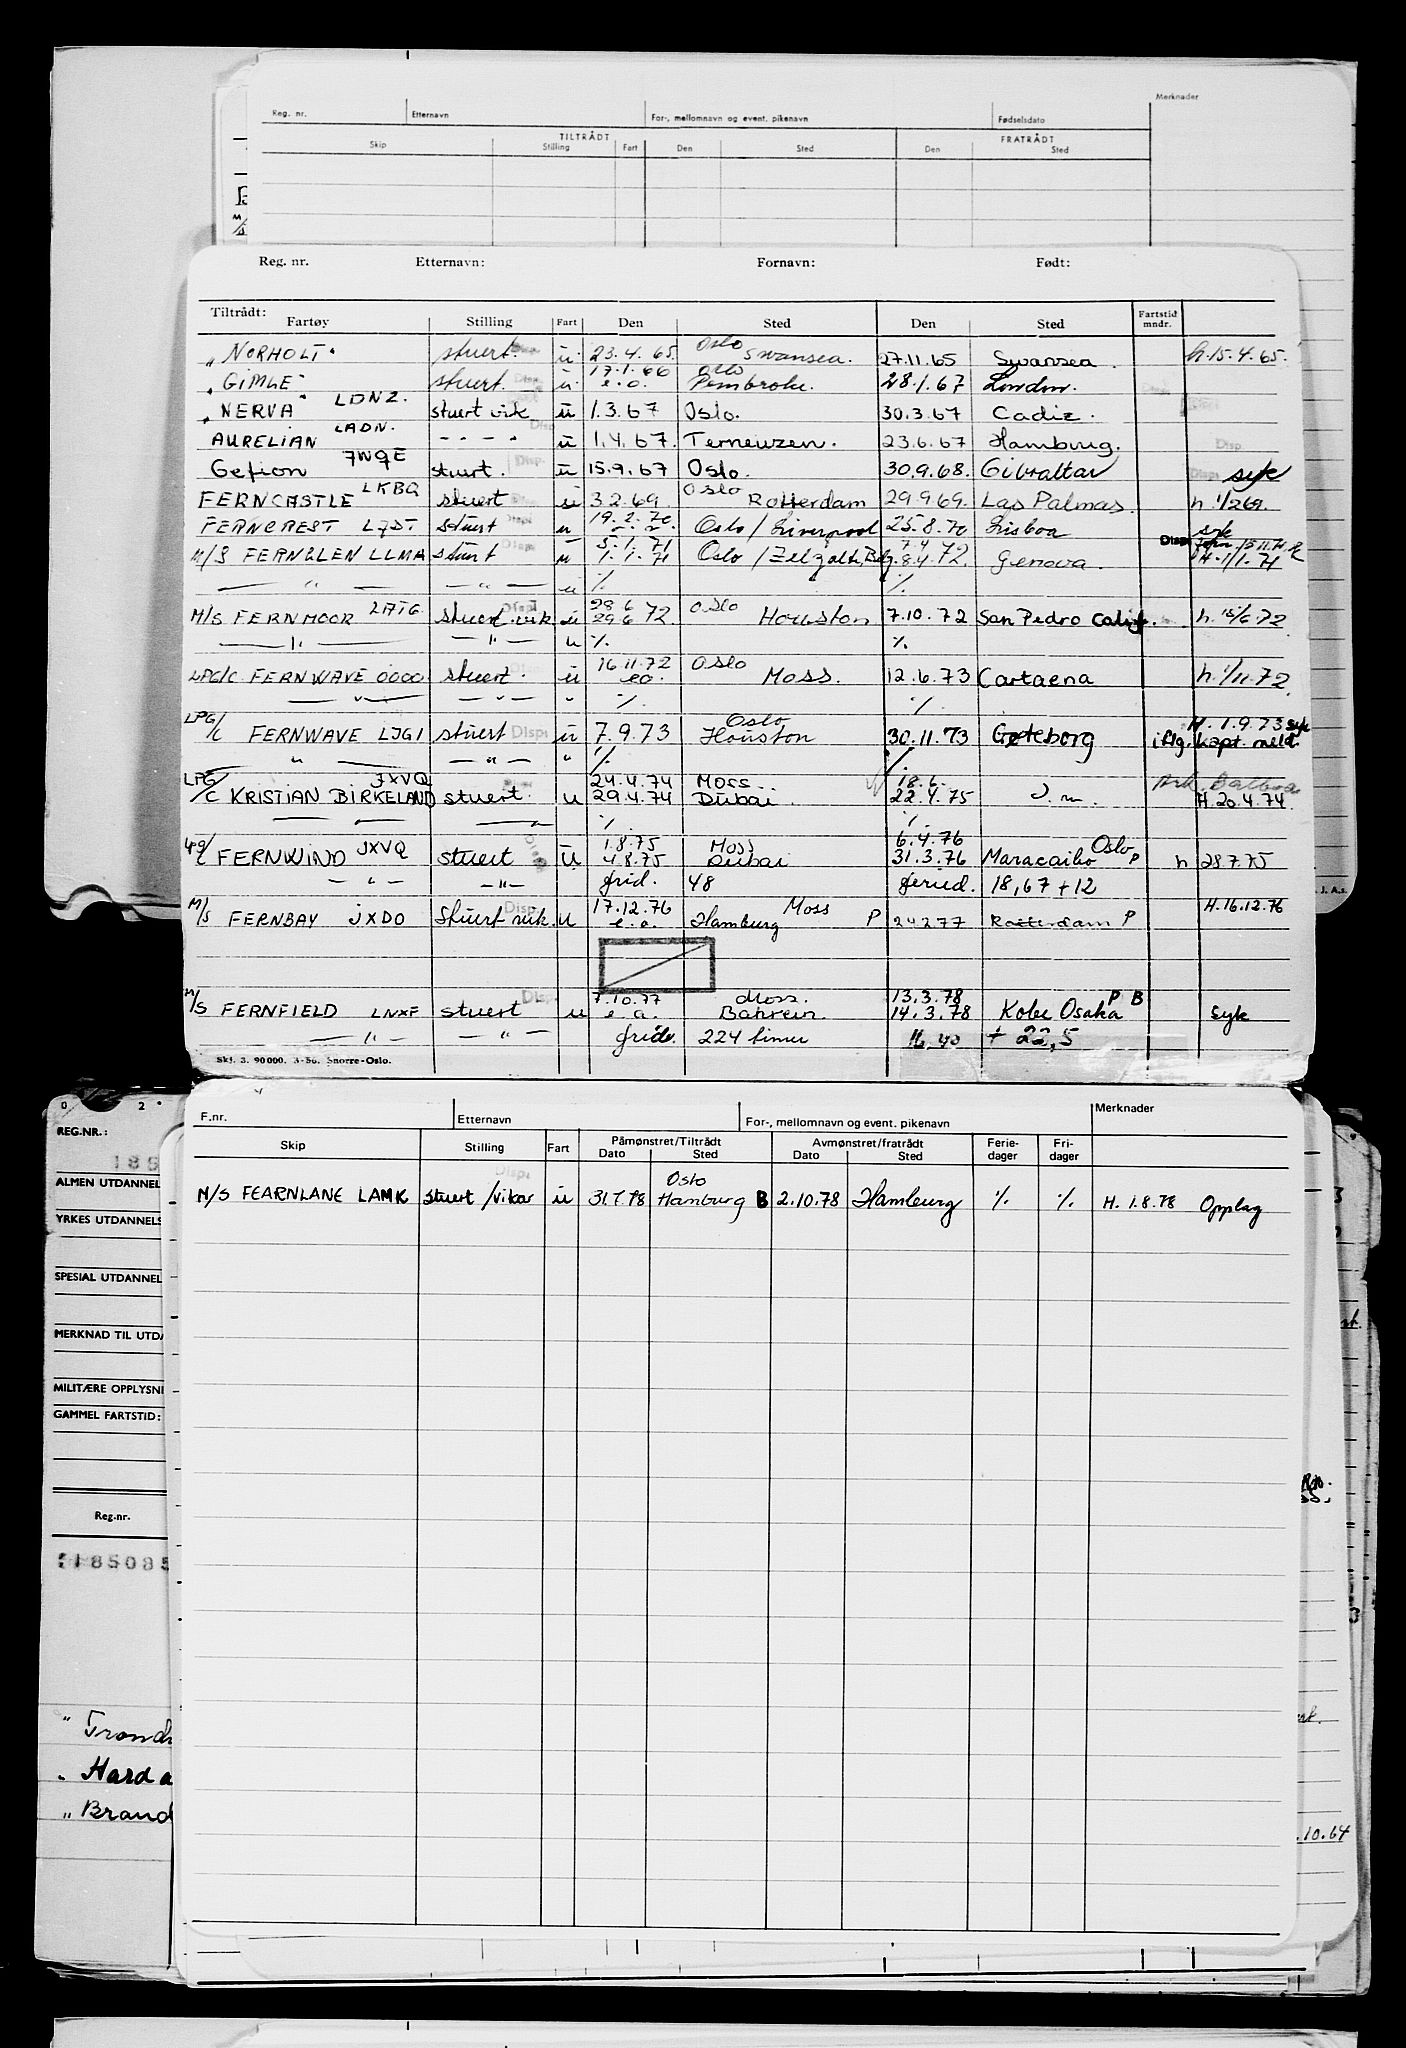 Merknader
Reg. nr. Etternavn For-, mellomnavn og event. pikenavn Fødselsdato
TILTRÅDT FRATRÅDT
Skip Stilling Fart Den Sted Den Sted
Reg. nr. Etternavn: Fornavn: Født:
Tiltrådt: Fartstid
Fartøy Stilling Fart Den Sted Den Sted mndr.
Oslo
"NORHOLT" stuert. u. 23.4.65. Swansea. 27.11.65 Swansea h.15.4.65.
17.1.66 Oslo
"GIMLE" stuert. u. e.o. Pembroke. 28.1.67 London.
"NERVA" LDNZ. stuert vik u 1.3.67 Oslo. 30.3.67 Cadiz.
AURELIAN LADN. - " - " u 1.4.67. Terneuzen. 23.6.67 Hamburg. Disp.
Gefion JWQE stuert. Disp. u 15.9.67 Oslo. 30.9.68. Gibraltar syk
FERNCASTLE LKBG stuert u 3.2.69. Oslo Rotterdam 29.9.69. Las Palmas. h. 1/2 69.
FERNCREST stuert u 19.2.70. Oslo / Liverpool 25.8.70 Lisboa syk
5.1.71 7.4
M/S FERNGLEN LLMA stuert u 7.1.71 Oslo / Belg. 8.4.72. Genova. H. 1/1.71
— " — — " — u % %
28.6
M/S FERNMOOR LATG stuert vik u 29.6 72 Oslo Houston 7.10.72 San Pedro Calif. h. 15/6.72
— " — — " — u % %
16.11.72 Oslo
LPG/C FERNWAVE OOOO stuert. u e.o. Moss. 12.6.73 Cartaena h. 1/11.72.
— " — — " — " % %
Oslo H. 1.9.73 syk
LPG/C FERNWAVE LJGI stuert Disp. u 7.9.73 Houston 30.11.73 Gøteborg iflg. kapt. meld.
" — " — " % %
JXVQ 24.4.74 Moss. 18.6.
LPG/C KRISTIAN BIRKELAND stuert. u 29.4.74 Dubai. 22.4.75 H.20.4.74
% %
1.8.75 Moss 6.4.76 Oslo
LPG/C FERNWIND JXVQ stuert u 4.8.75 Dubai 31.3.76 Maracaibo P h 28.7.75
— " — — " — frid. 48 feried. 18,67 + 12
17.12.76 Moss H.16.12.76
M/S FERNBAY JXDO Stuert vik. u e.o. Hamburg P 24.2.77 Rotterdam P
7.10.77 Moss. 13.3.78 P B
M/S FERNFIELD LNXF stuert u e.o. Bahrein. 14.3.78 Kobe Osaka syk
— " — — " — frid. 224 timer 16,40 + 22,5
Skj. 3. 90000. 3-56. Snorre-Oslo.
F.nr. Etternavn For-, mellomnavn og event. pikenavn Merknader
Skip Stilling Fart Påmønstret/Tiltrådt Avmønstret/fratrådt Ferie- Fri-
Dato Sted Dato Sted dager dager
Oslo
M/S FEARNLANE LAMK stuert /vikar u 31.7.78 Hamburg B 2.10.78 Hamburg % % H. 1.8.78 Opplag
REG.NR.:
ALMEN UTDANNEL
YRKES UTDANNELS
SPESIAL UTDANNEL
MERKNAD TIL UTDA
MILITÆRE OPPLYSNI
GAMMEL FARTSTID:
Reg.nr.
185085
" Trond
" Hard a
" Brand
.10.64
J. A.s.